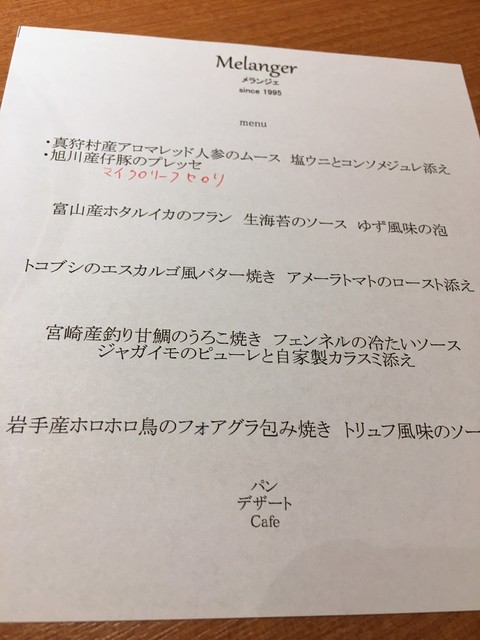 Melanger
メランジェ
since 1995
menu
・真狩村産アロマレッド人参のムース 塩ウニとコンソメジュレ添え
・旭川産仔豚のプレッセ
マイクロリーフセロリ
富山産ホタルイカのフラン 生海苔のソース ゆず風味の泡
トコブシのエスカルゴ風バター焼き アメーラトマトのロースト添え
宮崎産釣り甘鯛のうろこ焼き フェンネルの冷たいソース
ジャガイモのピューレと自家製カラスミ添え
岩手産ホロホロ鳥のフォアグラ包み焼き トリュフ風味のソー
パン
デザート
Cafe